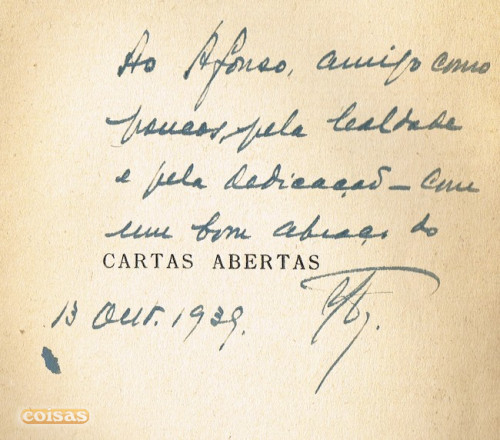 Ao Afonso, amigo como
poucos, pela lealdade
e pela dedicação – com
um bom abraço do
CARTAS ABERTAS
13 Out. 1939.
coisas